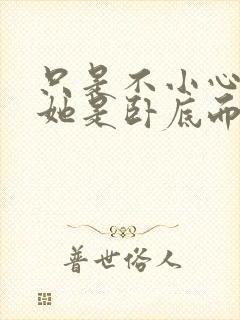 只是不小心
她是卧底而
普世俗人